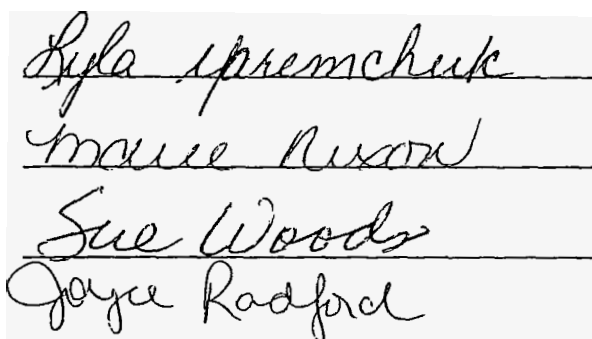 Lyla Yaremchuk
Marie Nixon
Sue Woods
Joyce Radford